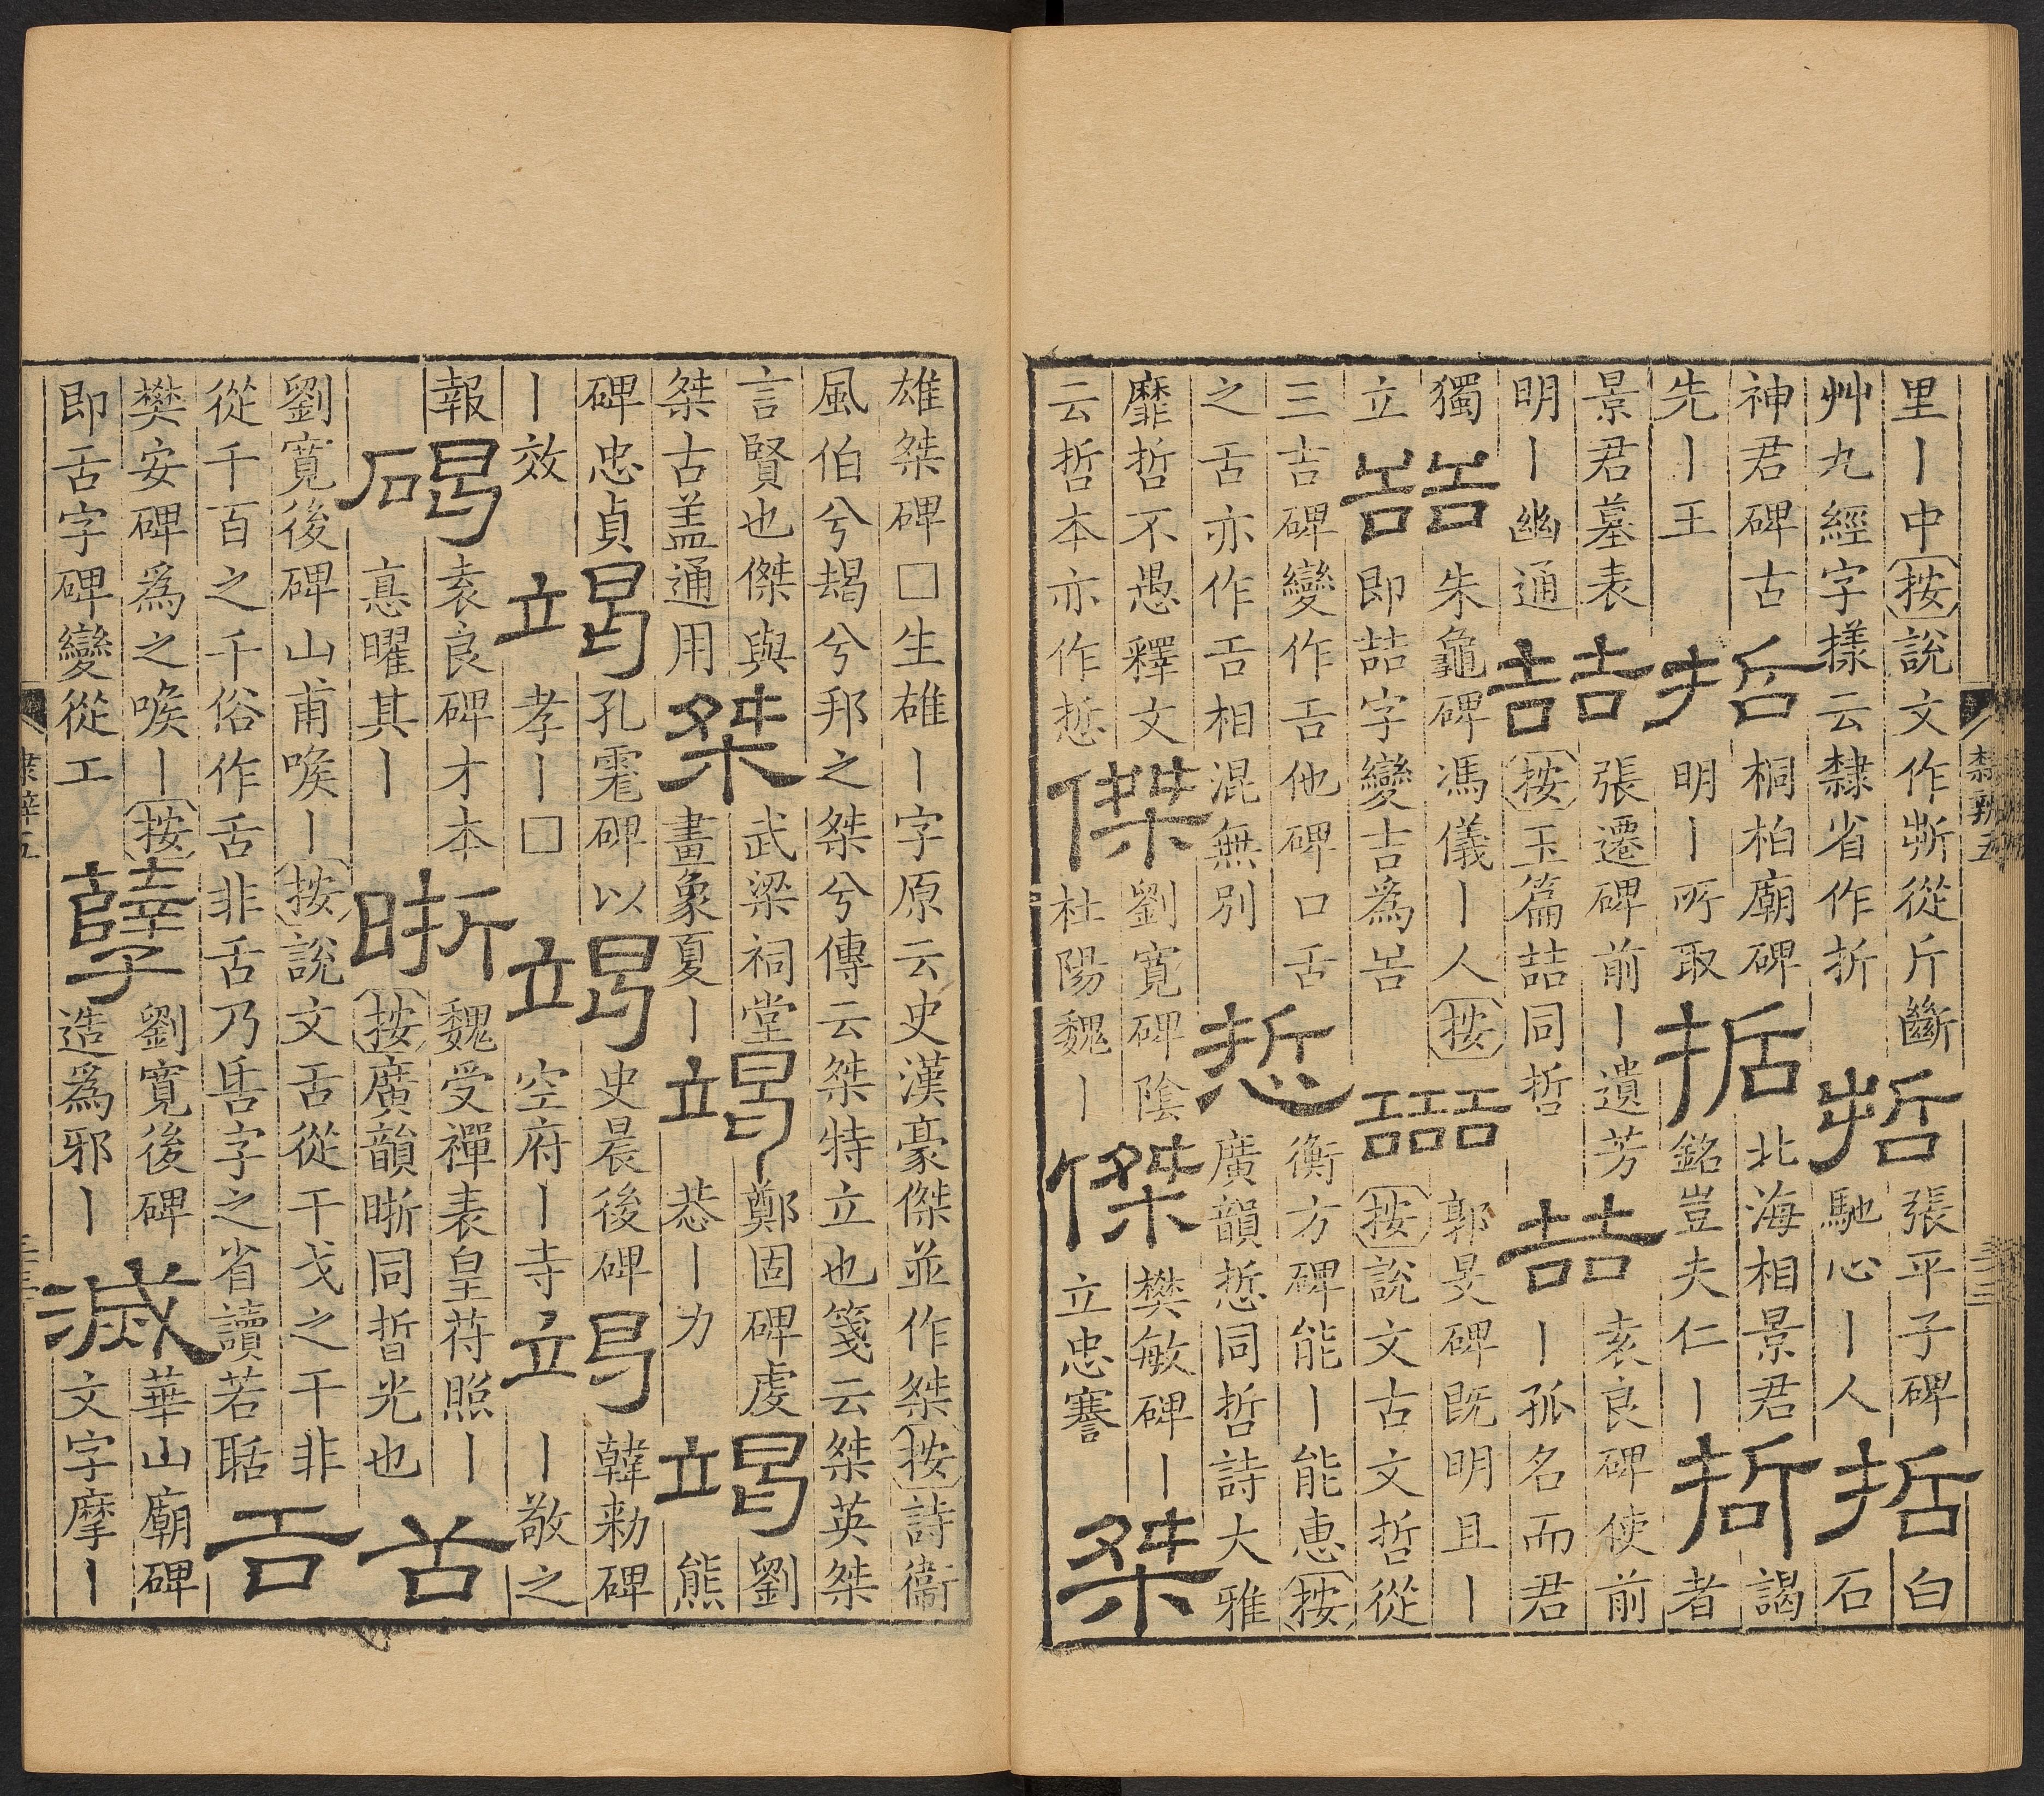 里丨中按說文作㪿從斤斷
艸九經字㨾云隸省作折
哲
張平子碑
馳心丨人
哲
白
石
神君碑古
先丨王
哲
桐柏廟碑
明丨所取
哲
北海相景君
銘豈夫仁丨
哲
謁
者
景君墓表
明丨幽通
喆
張遷碑前丨遺芳
按玉篇喆同哲
喆
袁良碑使前
丨孤名而君
獨
立
喆
朱龜碑馮儀丨人按
即喆字變吉爲𠮷
嚞
郭旻碑既明且丨
按說文古文哲從
三吉碑變作舌他碑口舌
之舌亦作舌相混無別
悊
衡方碑能丨能恵按
廣韻悊同哲詩大雅
靡哲不愚釋文
云哲本亦作悊
傑
劉寬碑陰
杜陽魏丨
傑
樊敏碑丨
立忠謇
桀
隸辨五
雄桀碑□生雄丨字原云史漢豪傑並作桀按詩衞
風伯兮朅兮邦之桀兮傳云桀特立也箋云桀英桀
言賢也傑與
桀古盖通用
桀
武梁祠堂
畫象夏丨
竭
鄭固碑虔
恭丨力
竭
劉
熊
碑忠貞
丨效
竭
孔碑以
孝丨□
竭
史晨後碑
空府丨寺
竭
韓勑碑
丨敬之
報
碣
袁良碑才本
惪曜其丨
晣
魏受禪表皇苻照丨
按廣韻晣同晢光也
舌
劉寬後碑山甫喉丨按說文舌從干戈之干非
從千百之千俗作舌非舌乃𠯑字之省讀若聒
舌
樊安碑爲之喉丨按
即舌字碑變從工
孽
劉寬後碑
造爲邪丨
滅
華山廟碑
文字摩丨
隸辨五